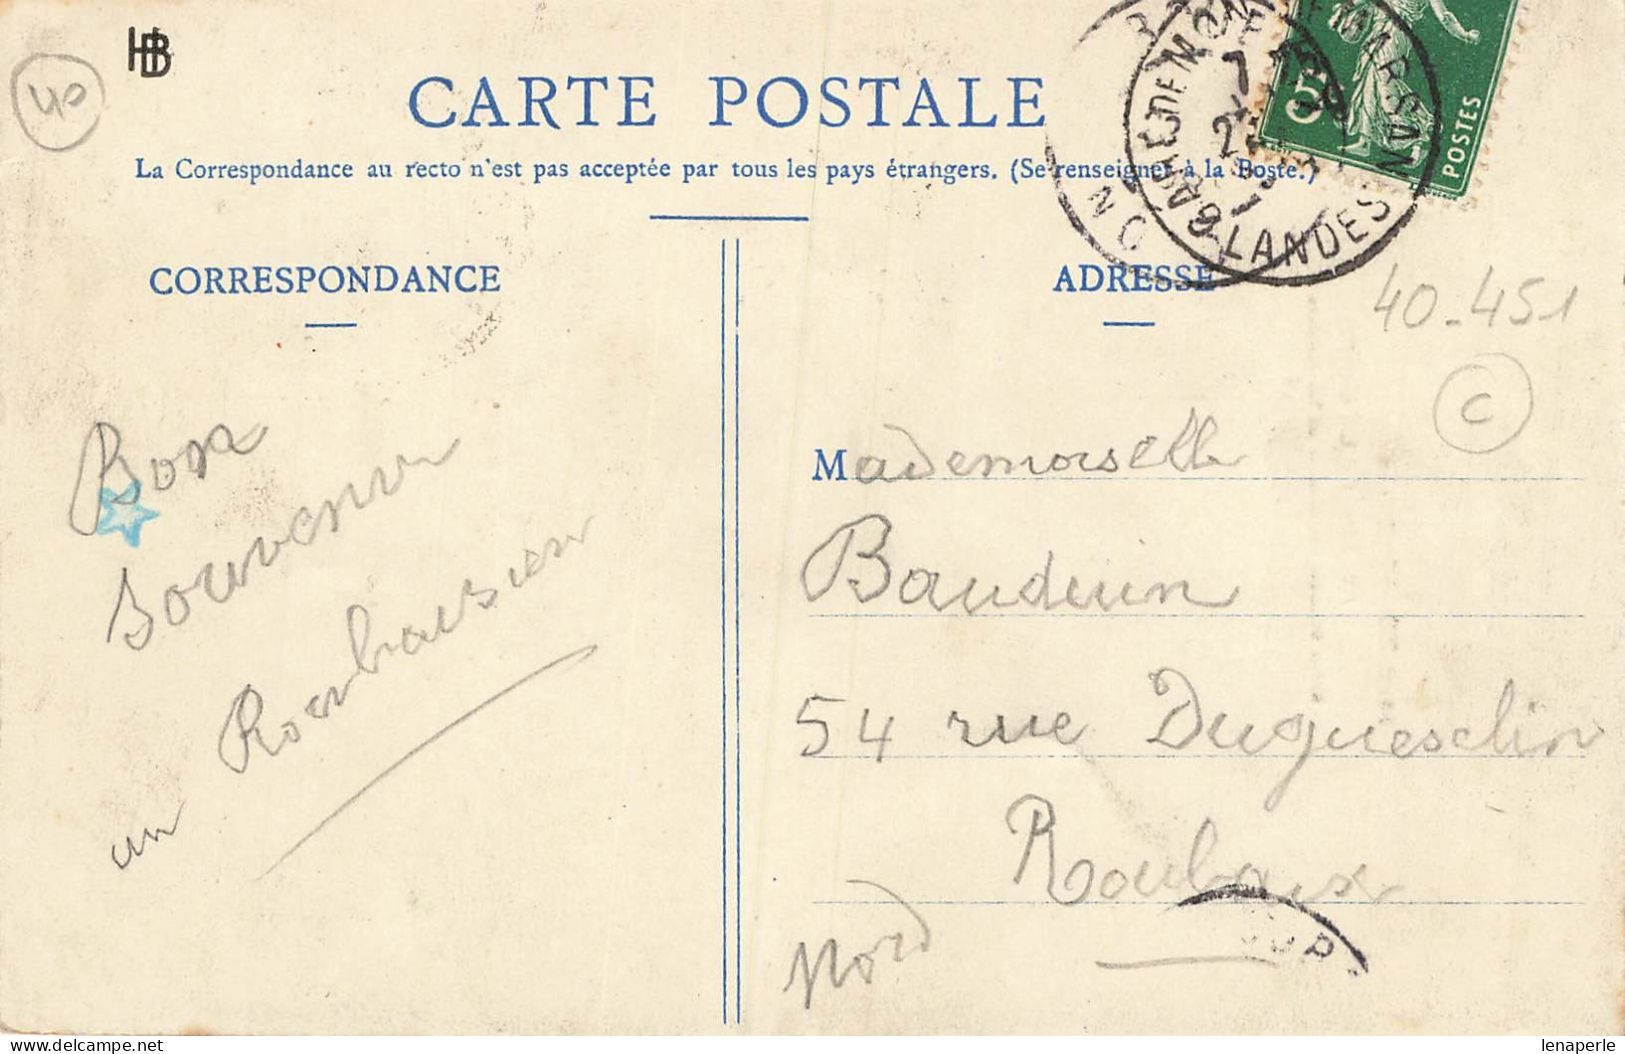 HB
40
CARTE POSTALE
La Correspondance au recto n'est pas acceptée par tous les pays étrangers. (Se renseigner à la Poste.)
GARE DE MONT DE MARSAN
LANDES
5
POSTES
CORRESPONDANCE
ADRESSE
40-451
C
Bon
Souvenir
un Roubaisien
Mademoiselle
Bauduin
54 rue Duguesclin
Roubaix
Nord
Delcampe.net
lenaperle